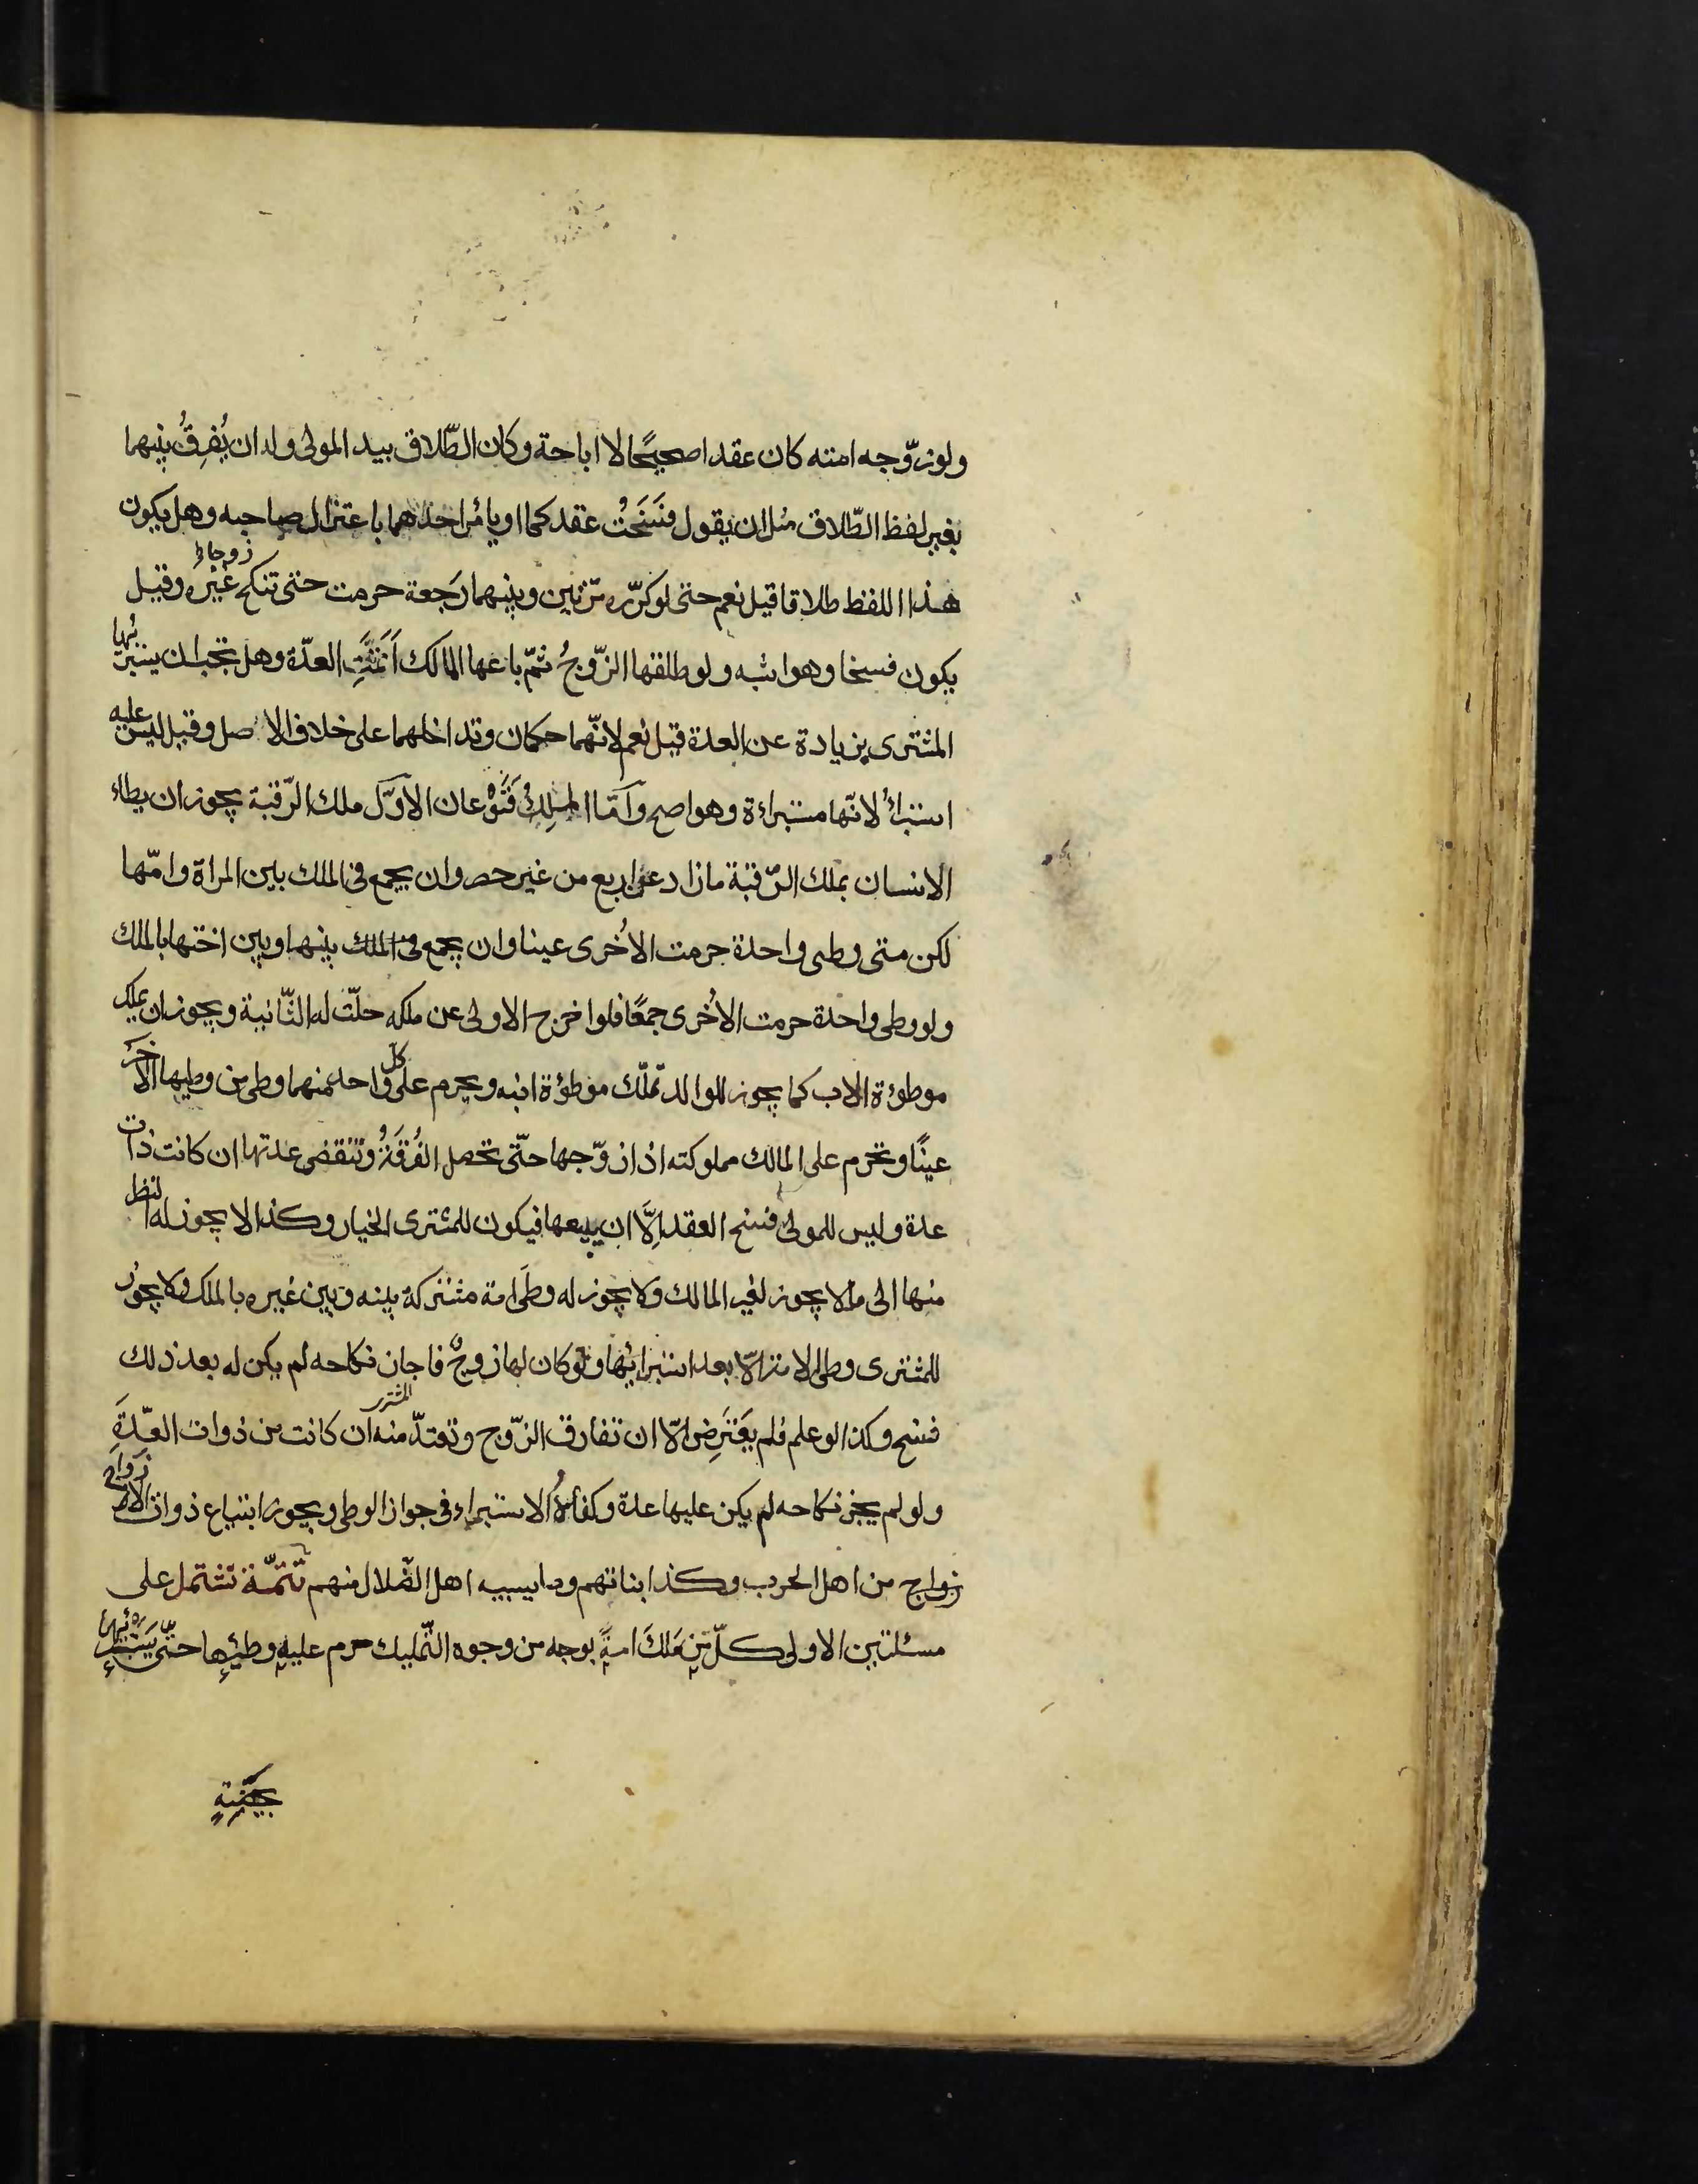 ولو زوّجه امته كان عقدا صحيحًا لا اباحة وكان الطّلاق بيد المولى وله ان يُفرِقُ بينهما
بغير لفظ الطّلاق مثل ان يقول فسَخَتُ عقدكما او يامُر احدهما باعتزال صاحبه وهل يكون
هذا اللفظ طلاقا قيل نعم حتى لو كرّره مرّتين وبينهما رَجعة حرمت حتى تنكح زوجا غيره وقيل
يكون فسخا وهو اشبه ولو طلقها الزّوجُ ثمّ باعها المالك اَتمّتِ العدّة وهل يجب ان يستبرئها
المشترى بزيادة عن العدة قيل نعم لانّهما حكمان وتداخلهما على خلاف الاصل وقيل ليس عليه
استبراءُ لانّها مستبراءة وهو اصح واَمّا الملِكُ فَنَوْعان الاوَّل ملك الرّقبة يجوز ان يطاء
الانسان بملك الرّقبة ما زاد عن اربع من غير حصر وان يجمع فى الملك بين المراة وامّها
لكن متى وطى واحدة حرمت الاُخرى عينا وان يجمع فى الملك بينها وبين اختها بالملك
ولو وطى واحدة حرمت الاُخرى جمعًا فلو اخرج الاولى عن ملكه حلّت له الثّانية ويجوز ان يملك
موطوءة الاب كما يجوز للوالد تملّك موطؤة ابنه ويحرم على كلّ واحد منهما وطى من وطيها الاخر
عينًا وتحرم على المالك مملوكته اذا زوّجها حتّى تحصل الفُرقَةُ وتنقضى عدتها ان كانت ذات
عدة وليس للمولى فسخ العقد اِلَّا ان يبيعها فيكون للمشترى الخيار وكذا لا يجوز له النظر
منها الى ما لا يجوز لغير المالك ولا يجوز له وطَى امة مشتركة بينه وبين غيره بالملك ولا يجوز
للمشترى وطى الامة الّا بعد استبرائها ولو كان لها زوجٌ فاجاز نكاحه لم يكن له بعد ذلك
فسخ وكذا لو علم فلم يَعْتَرِض الّا ان تفارق الزّوج وتعتدّ منه ان كانت من ذوات العدّة
المشترى
ولو لم يجز نكاحه لم يكن عليها عدة وكفاهُ الاستبراء فى جواز الوطى ويجوز ابتياع ذوات الازواج
زواج من اهل الحرب وكذا بناتهم وما يسبيه اهل الضّلال منهم تتمّة تشتمل على
مسئلتين الاولى كلّ مَن مَلكَ امةً بوجه من وجوه التّمليك حرم عليهِ وطئِها حتّى يَستَبرِئها
بحيضةٍ